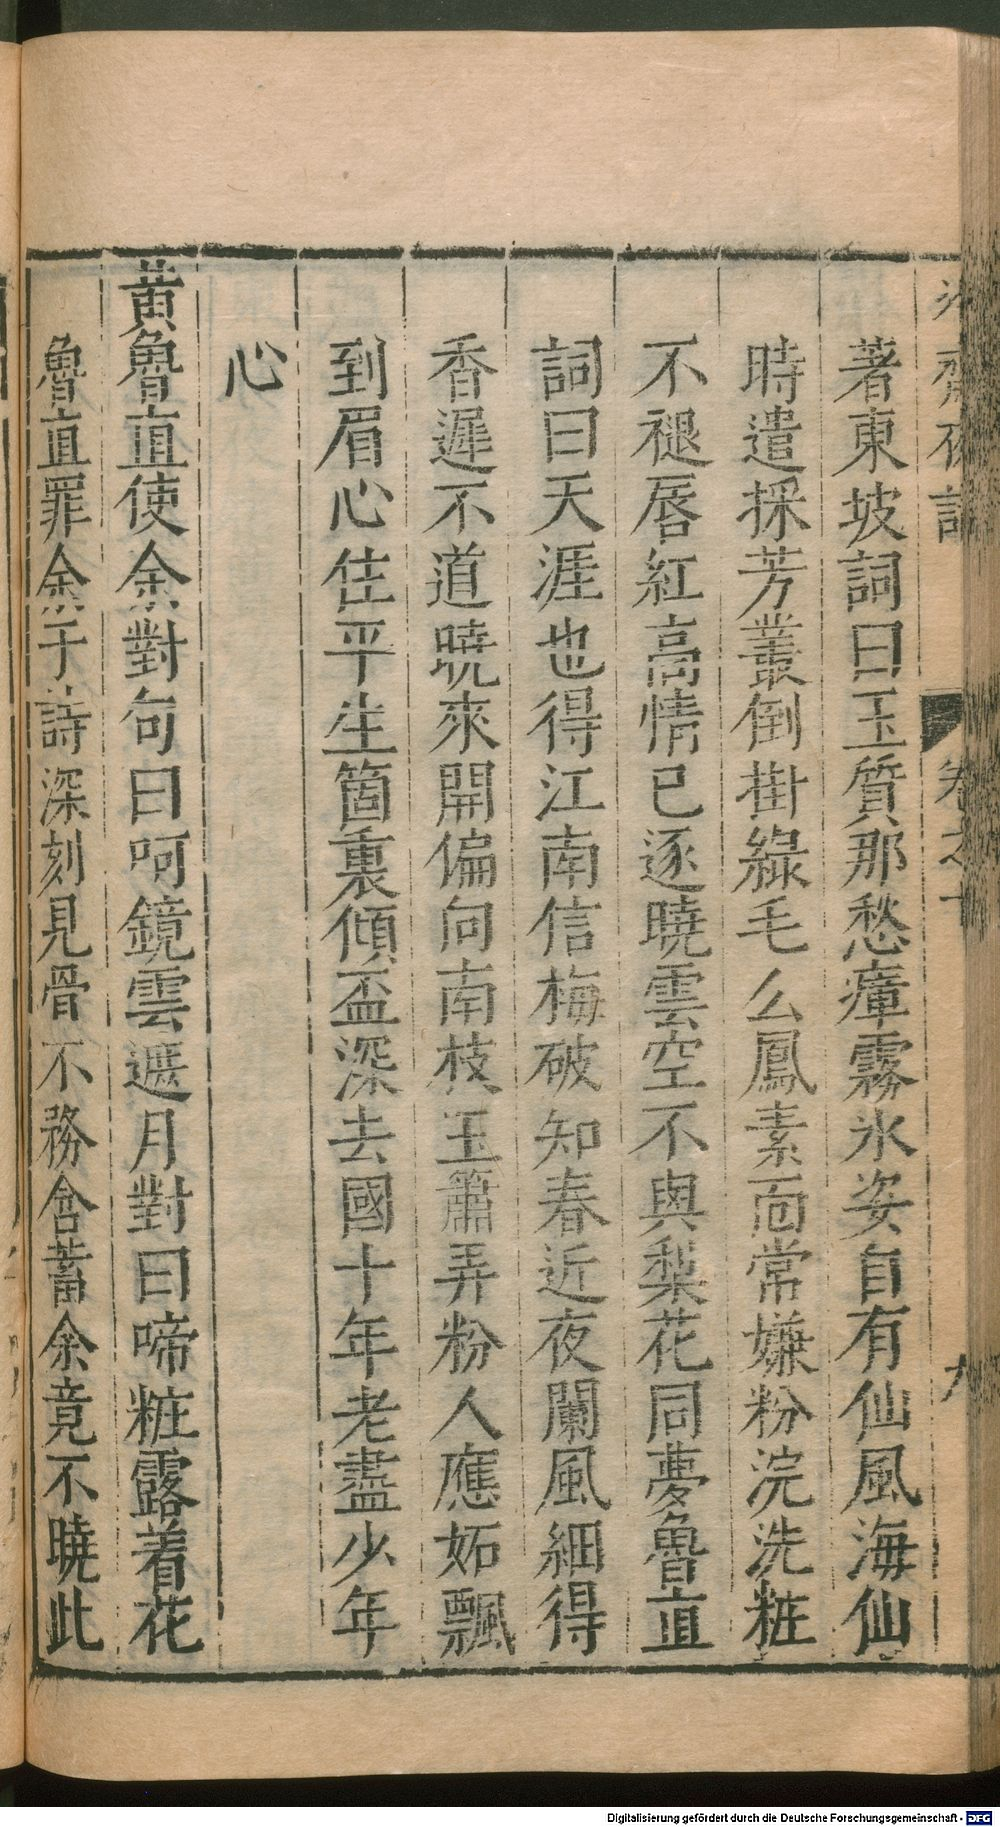 齋夜話
卷之十
九
著東坡詞曰玉質那愁瘴霧氷姿自有仙風海仙
時遣採芳叢倒掛綠毛么鳳素面常嫌粉涴洗粧
不褪唇紅高情已逐曉雲空不與梨花同夢魯直
詞曰天涯也得江南信梅破知春近夜闌風細得
香遲不道曉來開偏向南枝玉簫弄粉人應妬飄
到眉心住平生箇裏傾盃深去國十年老盡少年
心
黃魯直使余對句曰呵鏡雲遮月對曰啼粧露着花
魯直罪余于詩深刻見骨不務含蓄余竟不曉此
Digitalisierung gefördert durch die Deutsche Forschungsgemeinschaft - DFG